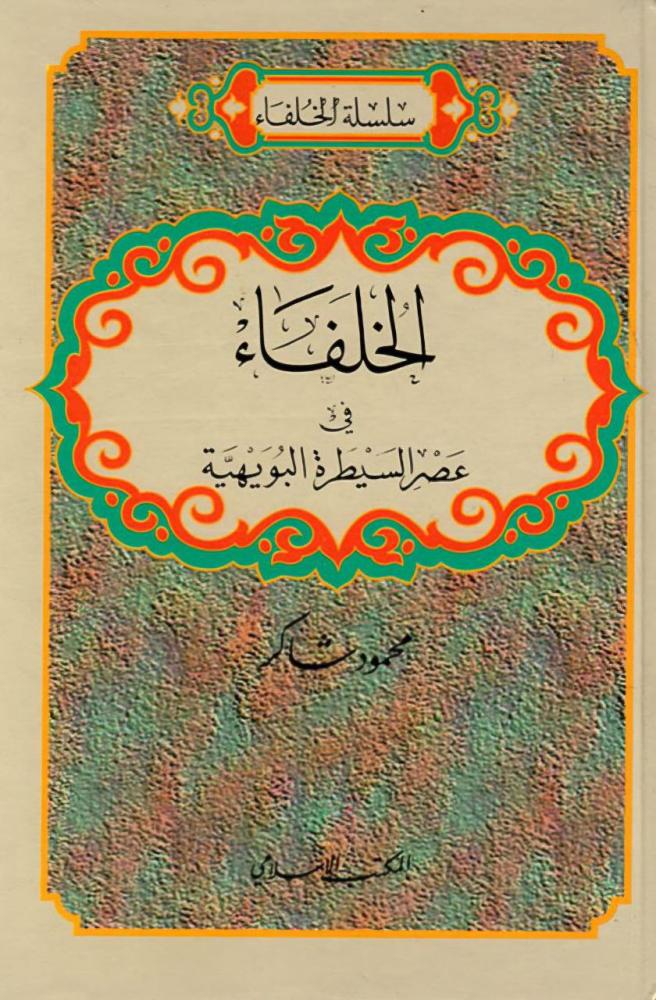 سلسلة الخُلفَاء
الخُلَفَاءْ
في
عَصْرِ السَّيْطَرة البُوَيهيَّة
محمود شاكر
المكتب الإسلامي